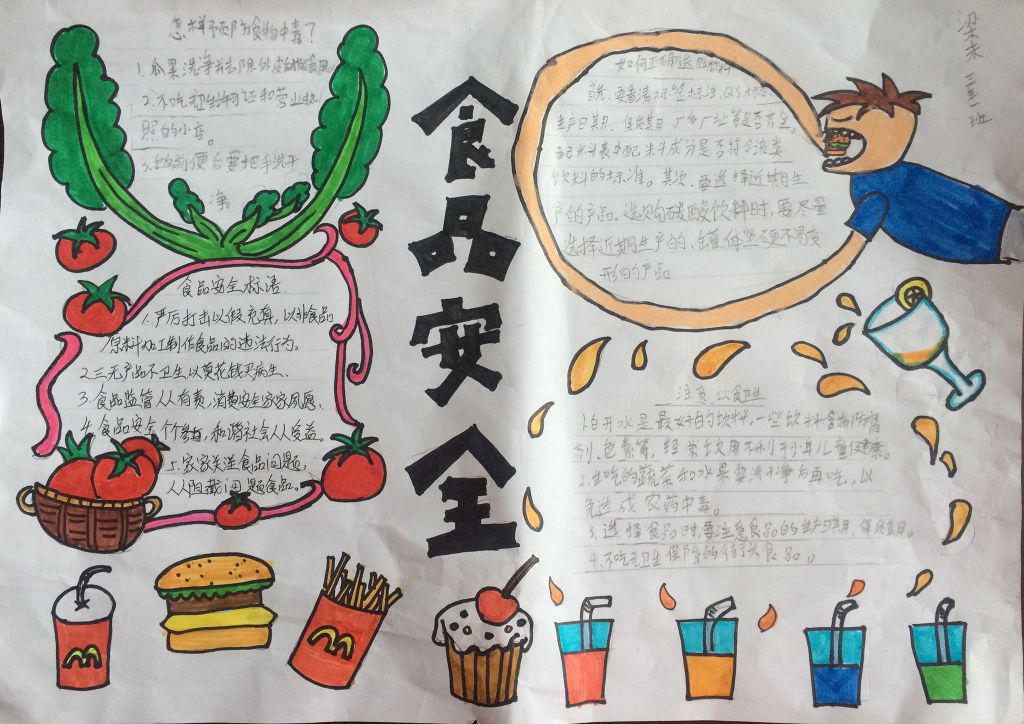 怎样预防食物中毒?
1.瓜果洗净并去除外皮后食用
2.不吃卫生许可证和营业执
照的小店。
3.饭前便后要把手洗干
净
食品安全标语
1.严厉打击以假充真,以非食品
原料加工制作食品的违法行为。
2.三无产品不卫生,以莫花钱买病生.
3.食品监管人人有责,消费安全家家同愿.
4.食品安全个个,和谐社会人人受益.
5.家家关注食品问题,
人人阻截问题食品。
食品安全
如何正确选购饮料
首先,要看清标签标注,QS标志
生产日期、保质期、厂名厂址等是否齐全。
配料表中配料成分是否符合该类
饮料的标准。其次,要选择近期生
产的产品。选购碳酸饮料时,要尽量
选择近期生产的、罐体坚硬不易变
形的产品
梁未
三班
注意饮食卫生
1.白开水是最好的饮料,一些饮料含有防腐
剂、色素等,经常饮用不利于少年儿童健康。
2.生吃的蔬菜和水果要洗干净后再吃,以
免造成农药中毒。
3.选择食品时,要注意食品的生产日期、保质期。
4.不吃无卫生保障的街头食品。